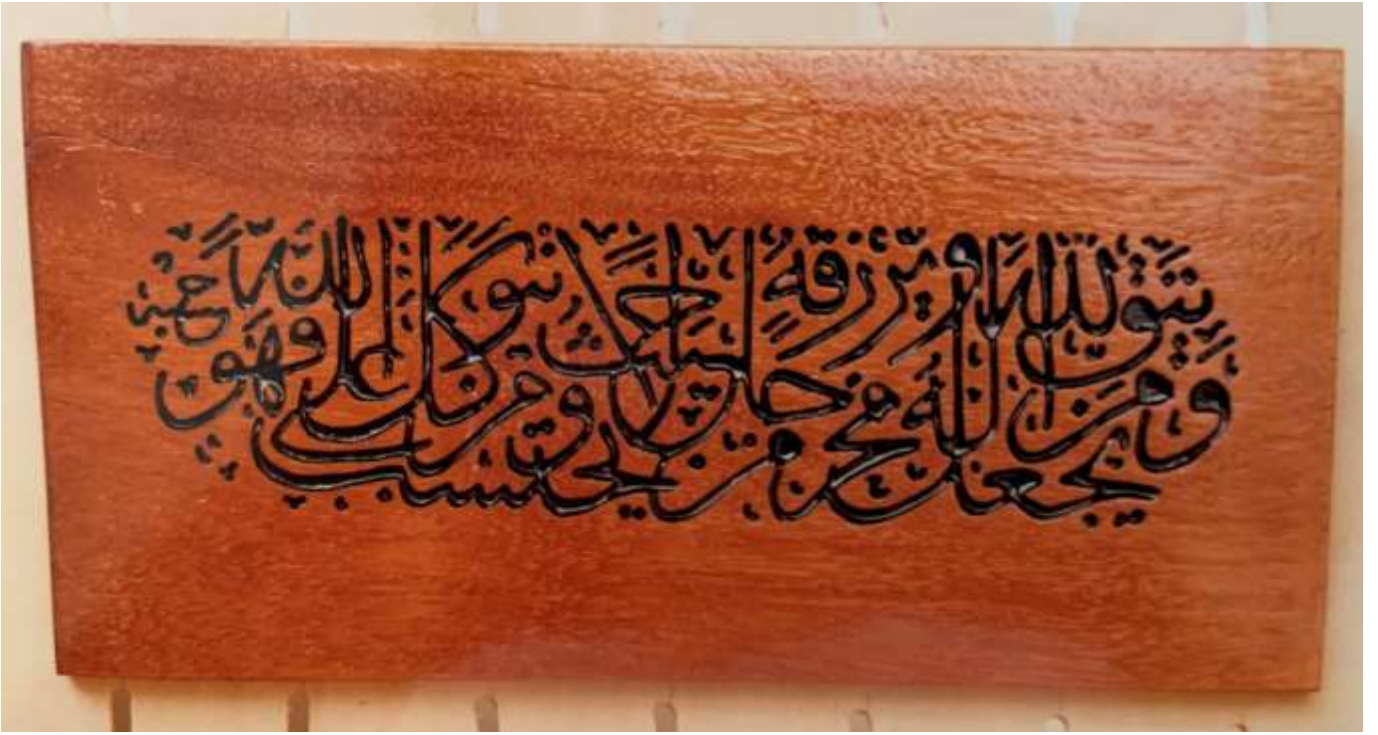 ومن يتق الله يجعل له مخرجا ويرزقه من حيث لا يحتسب ومن يتوكل على الله فهو حسبه